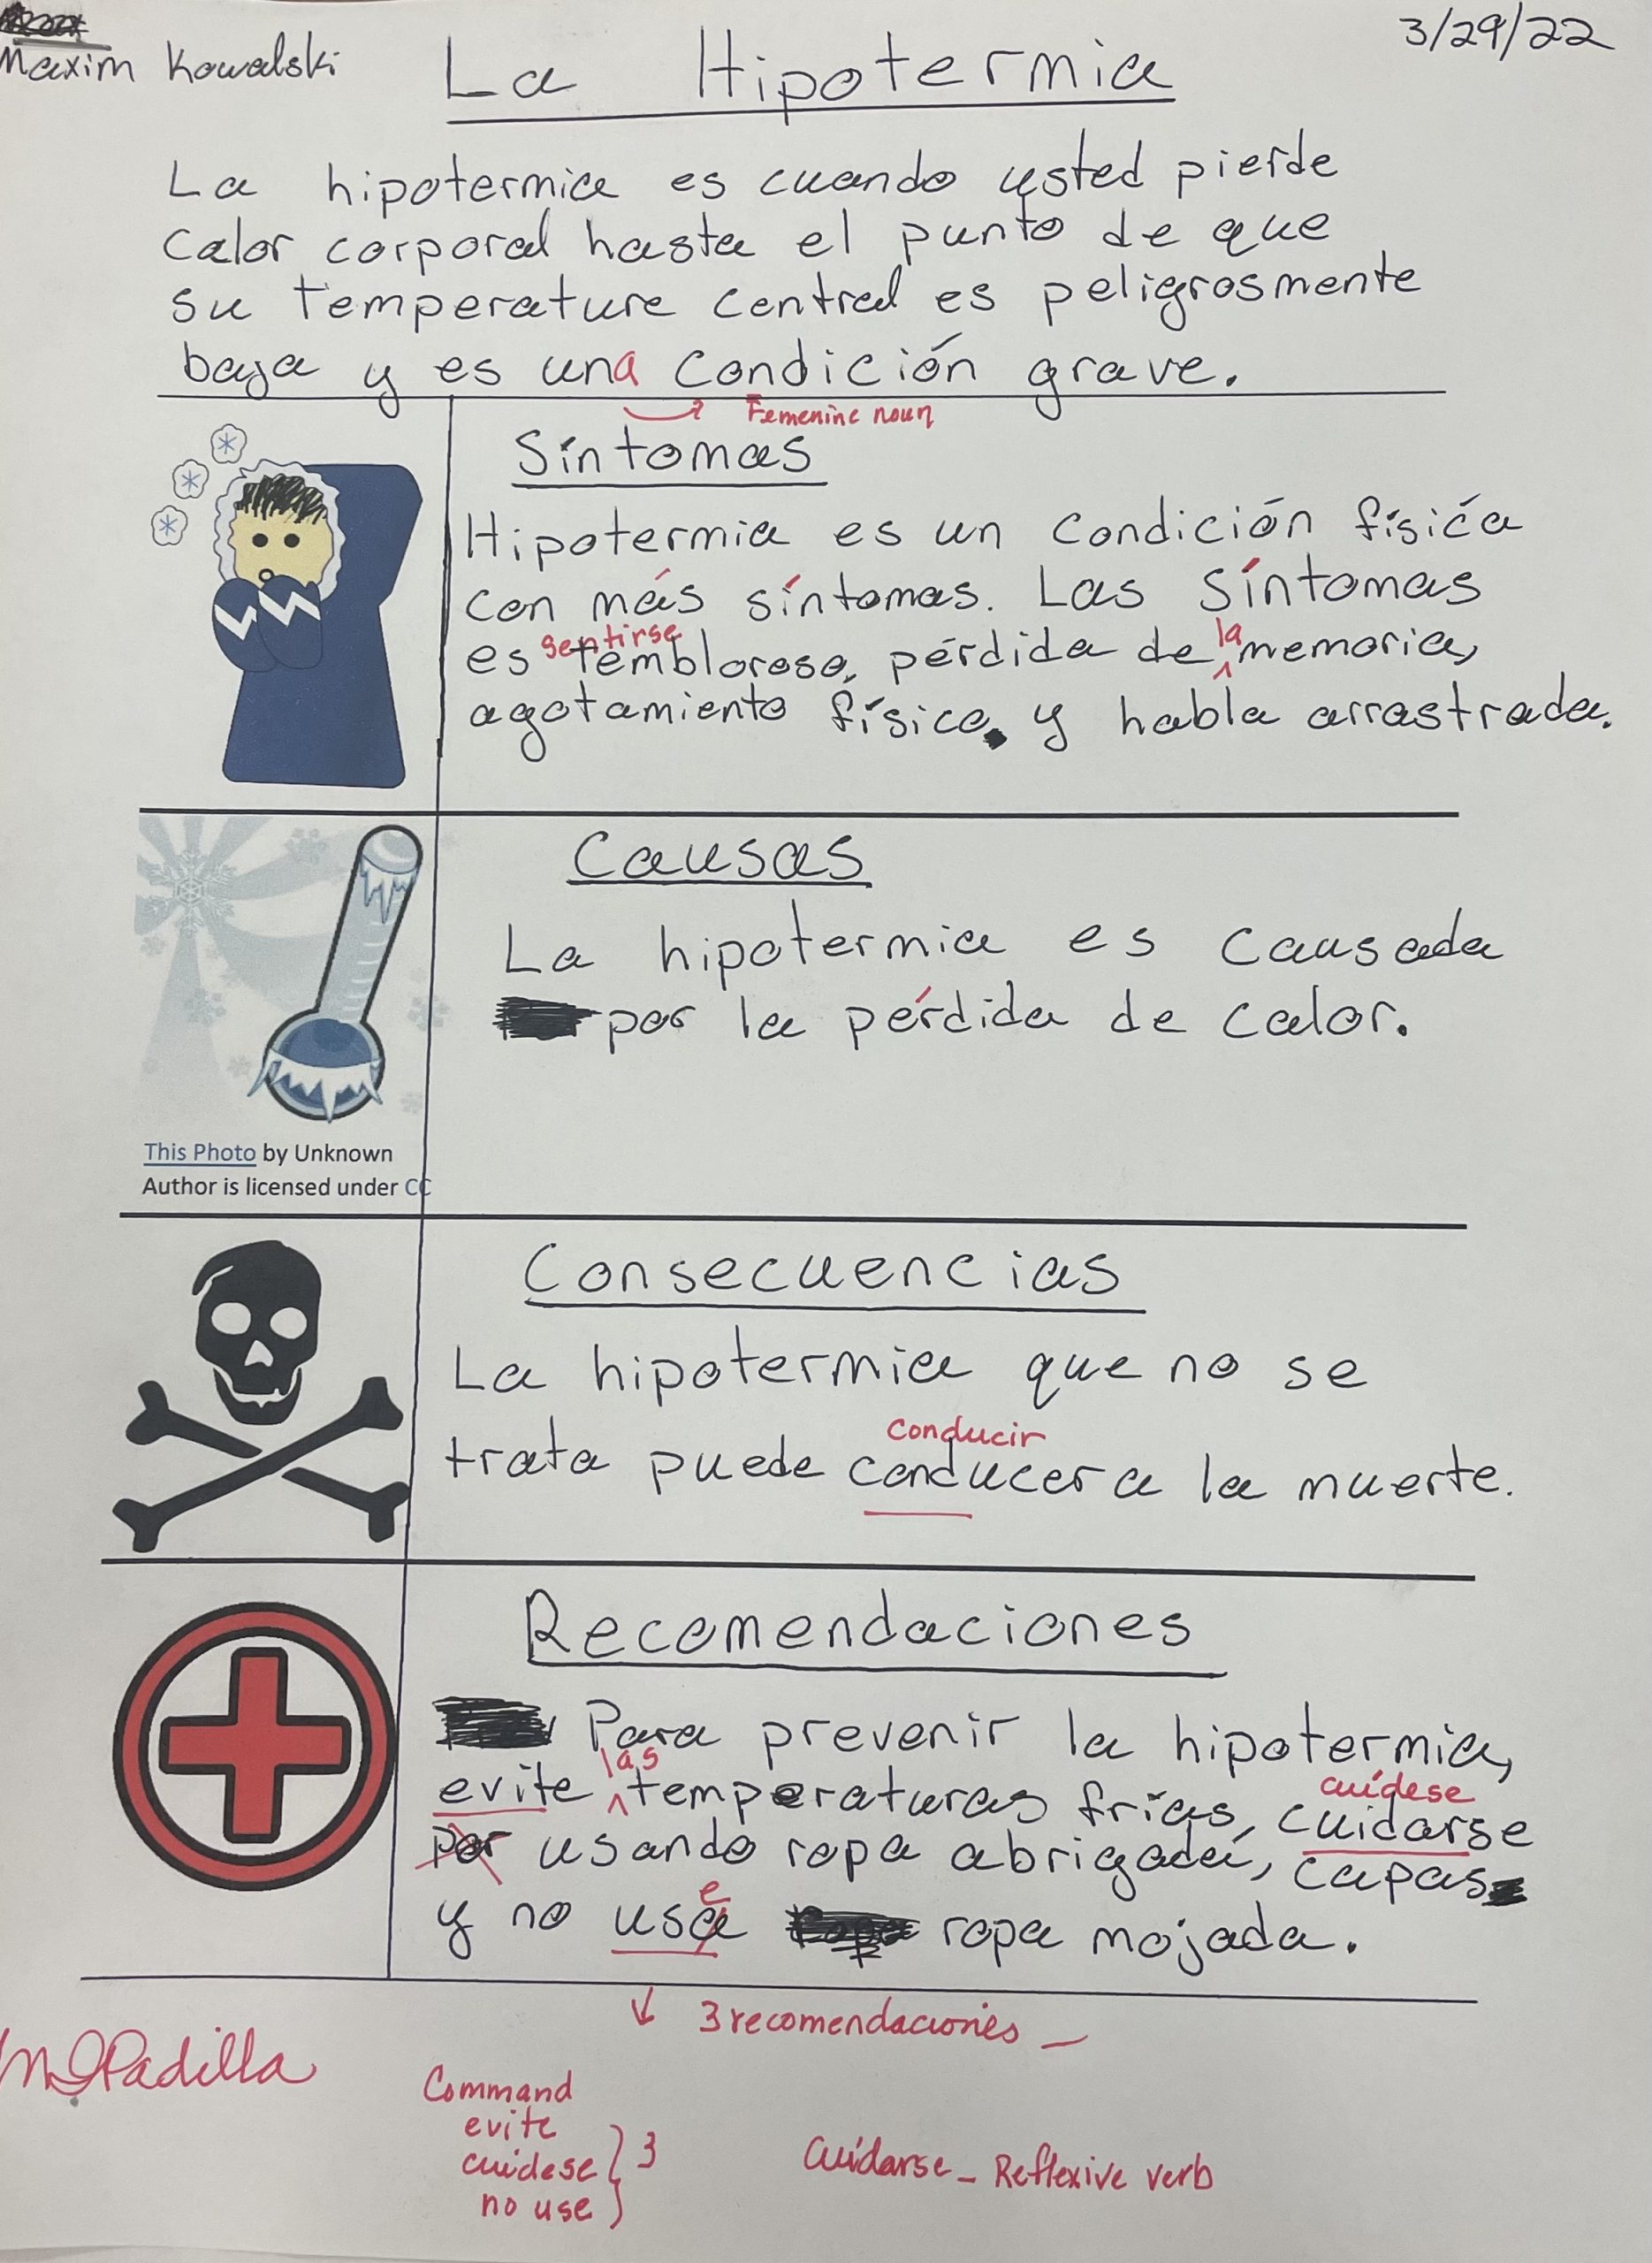 Maxim Kowalski
3/29/22
La Hipotermia
La hipotermia es cuando usted pierde
calor corporal hasta el punto de que
su temperature central es peligrosmente
baja y es una condición grave.
Femenine noun
Síntomas
Hipotermia es un condición física
con más síntomas. Las síntomas
sentirse la
es tembloroso, pérdida de memoria,
agotamiento físico y habla arrastrada.
Causas
La hipotermia es causada
por la pérdida de calor.
This Photo by Unknown
Author is licensed under CC
Consecuencias
La hipotermia que no se
conducir
trata puede conducer a la muerte.
Recomendaciones
Para prevenir la hipotermia,
las cuídese
evite temperaturas frías, cuidarse
por usando ropa abrigada, capas
e
y no usa ropa mojada.
3 recomendaciones
Padilla
Command
evite
cuídese } 3
no use
Cuídarse - Reflexive verb